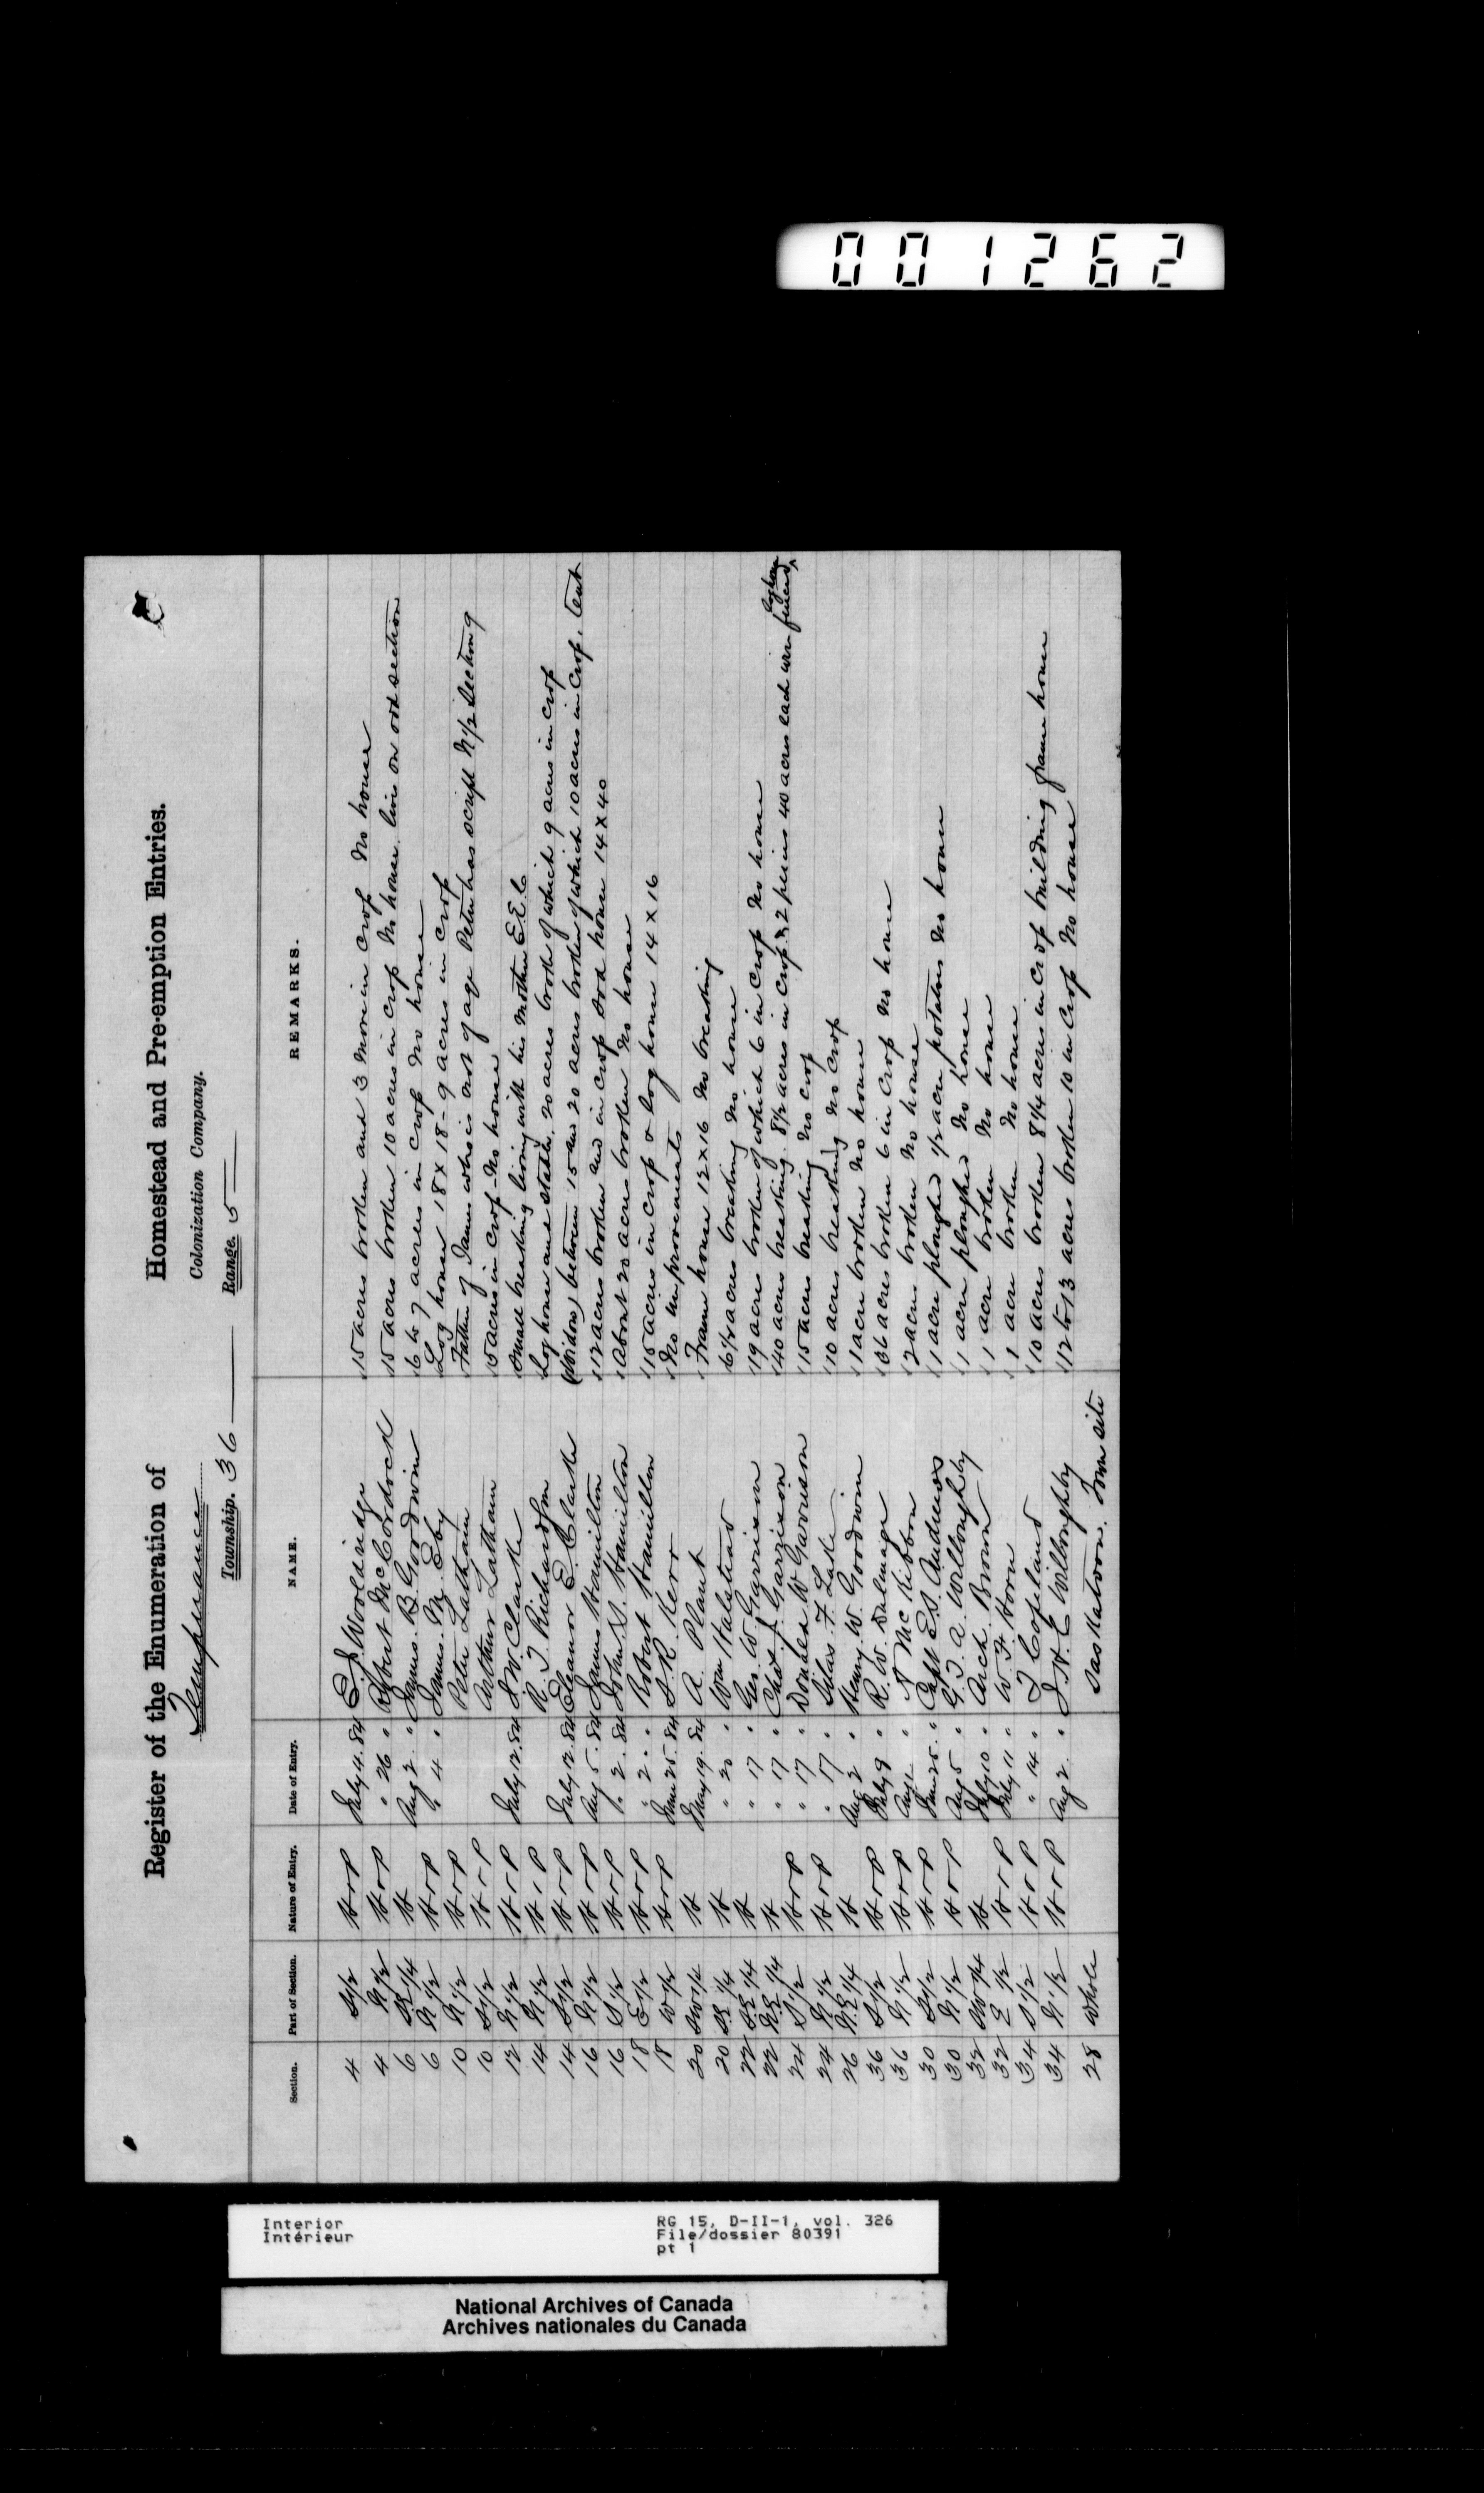 001262
Register of the Enumeration of Homestead and Pre-emption Entries.
Temperance Colonization Company.
Township. 36 Range. 5
Section. Part of Section. Nature of Entry. Date of Entry. NAME. REMARKS.
4 S 1/2 H & P July 4. 84 E. J. Wooldridge 15 acres broken and 3 more in crop No house
4 N 1/2 H & P " 26 " Robert McCordick 15 acres broken 10 acres in crop No house, lives on odd section
6 SE 1/4 H Aug 2 " James. B. Goodwin 6 to 7 acres in crop No house
6 N 1/2 H & P " 4 " James. M. Eby Log house 18 x 18 - 9 acres in crop
10 N 1/2 H & P Peter Latham Father of James who is not of age Peter has script N 1/2 Section 9
10 S 1/2 H & P Arthur Latham 5 acres in crop - No house
12 N 1/2 H & P July 12. 84 J W. Clarke Small breaking living with his mother E. E. C
14 N 1/2 H & P R. J. Richardson Log house and stable, 20 acres broke of which 9 acres in crop
14 S 1/2 H & P July 12. 84 Eleanor E. Clarke (Widow) between 15 and 20 acres broken of which 10 acres in crop, tent
16 N 1/2 H & P Aug 5. 84 James Hamilton 12 acres broken and in crop Sod house 14 x 40
16 S 1/2 H & P " 2. 84 John. S. Hamilton About 20 acres broken No house
18 E 1/2 H & P " 2. " Robert Hamilton 15 acres in crop & log house 14 x 16
18 W 1/2 H & P June 25. 84 S. R. Kerr No improvements
20 SW 1/4 H May 19. 84 A. Plant Frame house 12 x 16 No breaking
20 SE 1/4 H " 20 " Wm Halstead 6 1/2 acres breaking No house
22 SE 1/4 H " 17 " Geo. W. Garrison 19 acres broken of which 6 in crop No house
22 NE 1/4 H " 17 " Chas. J. Garrison 40 acres breaking. 8 1/2 acres in crop. & 2 pieces 40 acres each wire fenced, log house
24 S 1/2 H & P " 17 " Donald W Garrison 15 acres breaking No crop
24 N 1/2 H & P " 17 " Silas. F. Lake 10 acres breaking No crop
26 N.E 1/4 H Aug 2 " Henry. W. Goodwin 1 acre broken No house
36 S 1/2 H & P July 9 " R. W. Dulmage 36 acres broken 6 in crop No house
36 N 1/2 H & P Aug " McKibbon 2 acres broken No house
30 S 1/2 H & P June 25. " Capt E. S. Andrews 1 acre ploughed 1/2 acre potatoes No house
30 N 1/2 H & P Aug 5 " G. J. A. Willoughby 1 acre ploughed No house
32 NW 1/4 H July 10 " Arch. Brown 1 acre broken No house
32 E 1/2 H & P July 11 " W. F. Horn 1 acre broken No house
34 S 1/2 H & P " 14 " J Copeland 10 acres broken 8 1/4 acres in crop building frame house
34 N 1/2 H & P Aug 2. " J. H. C Willoughby 12 to 13 acres broken 10 in crop No house
28 Whole Saskatoon. Town site
Interior
Intérieur
RG 15, D-II-1, vol. 326
File/dossier 80391
pt 1
National Archives of Canada
Archives nationales du Canada